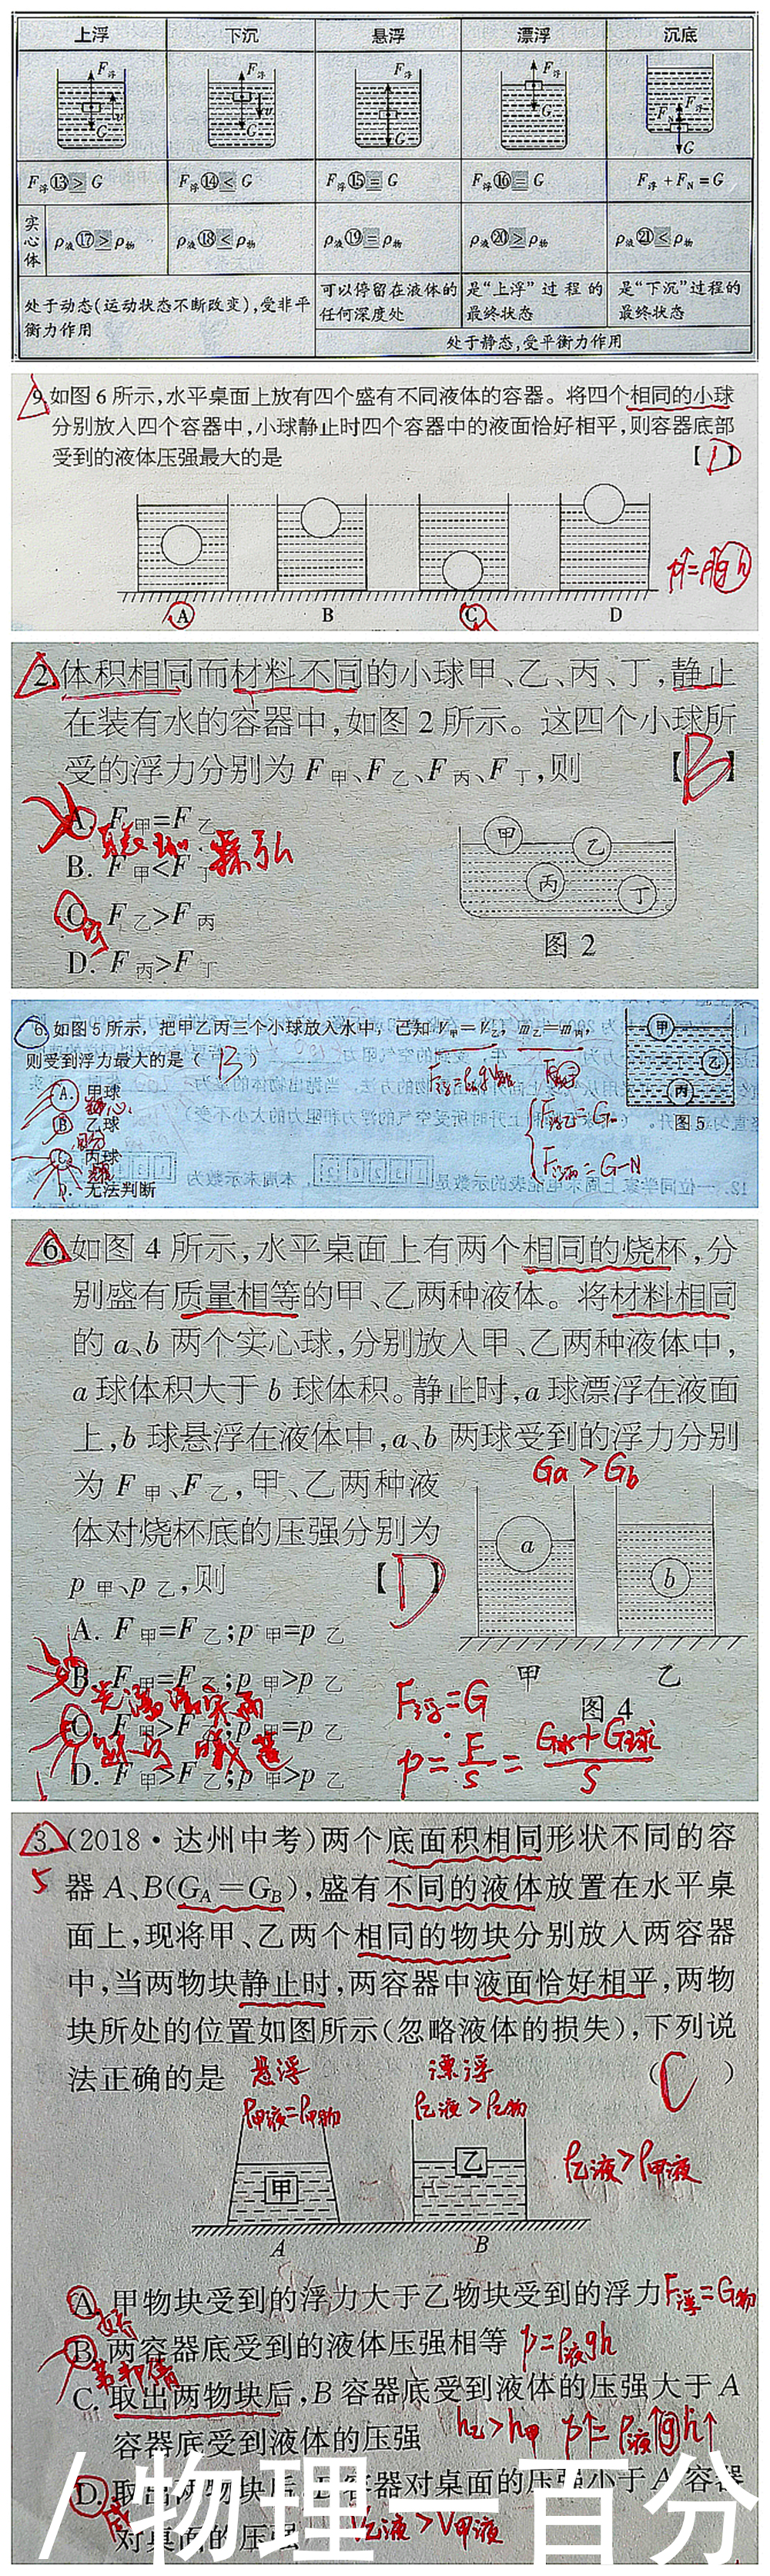 上浮 下沉 悬浮 漂浮 沉底
F浮 G v F浮 G v F浮 G F浮 G F浮 FN G
F浮⑬>G F浮⑭<G F浮⑮=G F浮⑯=G F浮+FN=G
实心体 ρ液⑰>ρ物 ρ液⑱<ρ物 ρ液⑲=ρ物 ρ液⑳>ρ物 ρ液㉑<ρ物
处于动态(运动状态不断改变),受非平衡力作用
可以停留在液体的任何深度处
是“上浮”过程的最终状态
是“下沉”过程的最终状态
处于静态,受平衡力作用
9.如图6所示,水平桌面上放有四个盛有不同液体的容器。将四个相同的小球
分别放入四个容器中,小球静止时四个容器中的液面恰好相平,则容器底部
受到的液体压强最大的是 【D】
p↑=ρ↑gh
A B C D
2.体积相同而材料不同的小球甲、乙、丙、丁,静止
在装有水的容器中,如图2所示。这四个小球所
受的浮力分别为F甲、F乙、F丙、F丁,则 【B】
A. F甲=F乙
B. F甲<F丁
C. F乙>F丙
D. F丙>F丁
甲 乙 丙 丁
图2
6.如图5所示,把甲乙丙三个小球放入水中,已知V甲=V乙,m乙=m丙,
则受到浮力最大的是(B)
A. 甲球
B. 乙球
C. 丙球
D. 无法判断
F浮乙=G
F浮丙=G-N
甲 乙 丙
图5
6.如图4所示,水平桌面上有两个相同的烧杯,分
别盛有质量相等的甲、乙两种液体。将材料相同
的a、b两个实心球,分别放入甲、乙两种液体中,
a球体积大于b球体积。静止时,a球漂浮在液面
上,b球悬浮在液体中,a、b两球受到的浮力分别
为F甲、F乙,甲、乙两种液
体对烧杯底的压强分别为
p甲、p乙,则 【D】
Ga>Gb
a b
甲 乙
图4
A. F甲=F乙;p甲=p乙
B. F甲=F乙;p甲>p乙
C. F甲>F乙;p甲=p乙
D. F甲>F乙;p甲>p乙
F浮=G
p=F/S=(G水+G球)/S
3.(2018·达州中考)两个底面积相同形状不同的容
5
器A、B(GA=GB),盛有不同的液体放置在水平桌
面上,现将甲、乙两个相同的物块分别放入两容器
中,当两物块静止时,两容器中液面恰好相平,两物
块所处的位置如图所示(忽略液体的损失),下列说
法正确的是 (C)
悬浮 漂浮
ρ甲液=ρ甲物 ρ乙液>ρ乙物
ρ乙液>ρ甲液
甲 乙
A B
A. 甲物块受到的浮力大于乙物块受到的浮力 F浮=G物
B. 两容器底受到的液体压强相等 p=ρ液gh
C. 取出两物块后,B容器底受到液体的压强大于A
容器底受到液体的压强 h乙>h甲 p↑=ρ液↑gh↑
D. 取出两物块后,B容器对桌面的压强小于A容器
对桌面的压强 V乙液>V甲液
/物理一百分